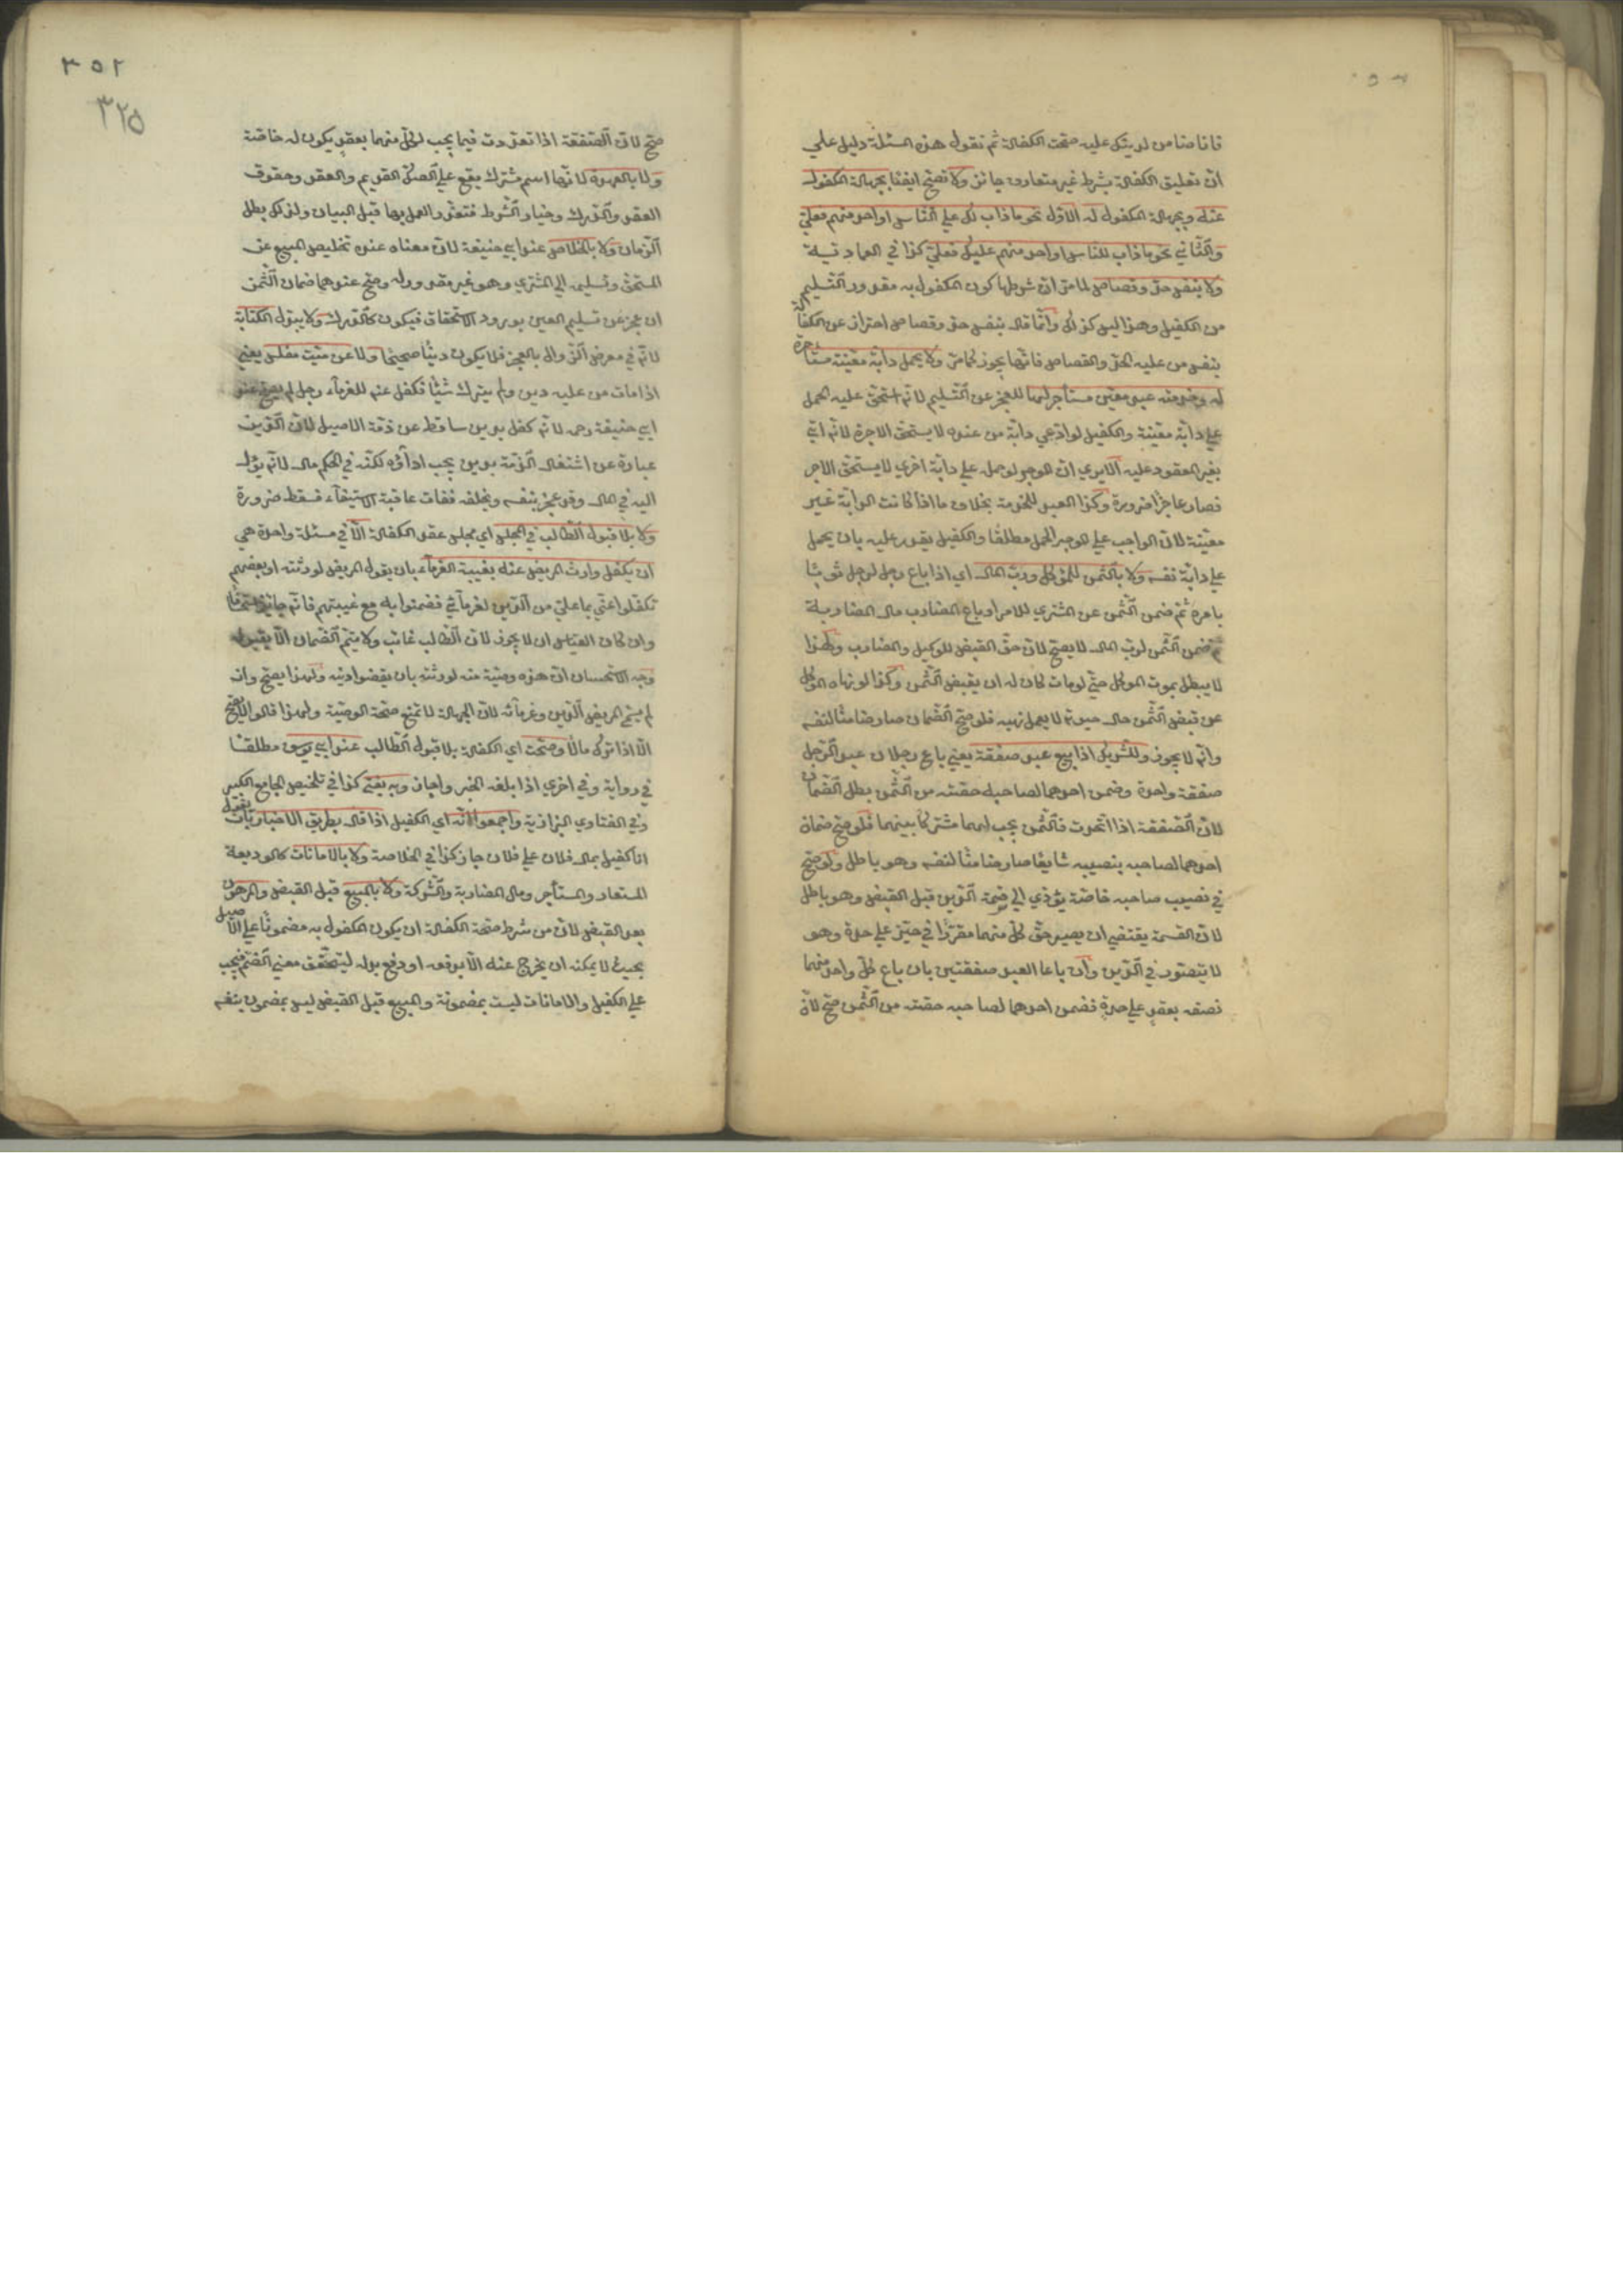 فانا ضامن لم يشكل عليه صحت الكفالة ثم نقول هذه المسئلة دليل علي
ان تعليق الكفالة بشرط غير متعارف جائز ولا تصح ايضا بجهالة المكفول
عنه وبجهالة المكفول له الاول نحو ما ذاب لك علي الناس او احد منهم فعلي
والثاني نحو ما ذاب للناس او احد منهم عليك فعلي كذا في العمادية
ولا بنفس حد وقصاص لما مر ان شرطها كون المكفول به مقدور التسليم
من الكفيل وهذا ليس كذلك وانما قال بنفس حد وقصاص احتراز عن الكفالة
بنفس من عليه الحد والقصاص فانها يجوز كما مر ولا بحمل دابة معينة مستأجرة
له وخدمة عبد معين مستأجر لها للعجز عن التسليم لانه استحق عليه الحمل
علي دابة معينة والكفيل لو ادعي دابة من عنده لا يستحق الاجرة لانه اتي
بغير المعقود عليه الا يري ان الموجر لو حمل علي دابة اخري لا يستحق الاجر
فصار عاجزا ضرورة وكذا العبد للخدمة بخلاف ما اذا كانت الدابة غير
معينة لان الواجب علي الموجر الحمل مطلقا والكفيل يقدر عليه بان يحمل
علي دابة نفسه ولا بالثمن للموكل ورب المال اي اذا باع رجل لرجل ثوبا
بامره ثم ضمن الثمن عن المشتري للامر او باع المضارب مال المضاربة
ثم ضمن الثمن لرب المال لا يصح لان حق القبض للوكيل والمضارب ولهذا
لا يبطل بموت الموكل حتي لو مات كان له ان يقبض الثمن وكذا لو نهاه الموكل
عن قبض الثمن حال حيوته لا يعمل نهيه فلو صح الضمان صار ضامنا لنفسه
وانه لا يجوز وللشريك اذا بيع عبد صفقة يعني باع رجلان عبدا لرجل
صفقة واحدة وضمن احدهما لصاحبه حصته من الثمن بطل الضمان
لان الصفقة اذا اتحدت فالثمن يجب لهما مشتركا بينهما فلو صح ضمان
احدهما لصاحبه بنصيبه شايعا صار ضامنا لنفسه وهو باطل ولو صح
في نصيب صاحبه خاصة يؤدي الي قسمة الدين قبل القبض وهو باطل
لان القسمة يقتضي ان يصير حق كل منهما مقررا في حيز علي حدة وهو
لا يتصور في الدين وان باعا العبد صفقتين بان باع كل واحد منهما
نصفه بعقد علي حدة فضمن احدهما لصاحبه حصته من الثمن صح لان
٣٥٢
٣٢٥
صح لان الصفقة اذا تعددت فيما يجب لكل منهما بعقد يكون له خاصة
ولا بالعهدة لانها اسم مشترك يقع علي الصك القديم والعقد وحقوق
العقد والدرك وخيار الشرط فتعذر العمل بها قبل البيان ولذلك بطل
الضمان ولا بالخلاص عند ابي حنيفة لان معناه عنده تخليص المبيع عن
المستحق وتسليمه الي المشتري وهو غير مقدور له وصح عندهما ضمان الثمن
ان عجز عن تسليم العين بورود الاستحقاق فيكون كالدرك ولا ببدل الكتابة
لانه في معرض الزوال بالعجز فلا يكون دينا صحيحا ولا عن ميت مفلس يعني
اذا مات من عليه دين ولم يترك شيئا فكفل عنه للغرماء رجل لم يصح عند
ابي حنيفة رحه لانه كفل بدين ساقط عن ذمة الاصيل لان الدين
عبارة عن اشتغال الذمة بدين يجب اداؤه لكنه في الحكم مال لانه يؤل
اليه في المال وقد عجز بنفسه وبخلفه ففات عاقبة الاستيفاء فسقط ضرورة
ولا بلا قبول الطالب في المجلس اي مجلس عقد الكفالة الا في مسئلة واحدة هي
ان يكفل وارث المريض عنه بغيبة الغرماء بان يقول المريض لورثته او بعضهم
تكفلوا عني بما علي من الدين لغرمائي فضمنوا به مع غيبتهم فانه جائز استحسانا
وان كان القياس ان لا يجوز لان الطالب غائب ولا يتم الضمان الا بقبوله
وجه الاستحسان ان هذه وصية منه لورثته بان يقضوا دينه ولهذا يصح وان
لم يسم المريض الدين وغرمائه لان الجهالة لا تمنع صحة الوصية ولهذا قالوا لا يصح
الا اذا ترك مالا وصحت اي الكفالة بلا قبول الطالب عند ابي يوسف مطلقا
في رواية وفي اخري اذا بلغه الخبر واجاز وبه يفتي كذا في تلخيص الجامع الكبير
وفي الفتاوي البزازية واجمعوا انه اي الكفيل اذا قال بطريق الاخبار بان يقول
انا كفيل بمال فلان علي فلان جاز كذا في الخلاصة ولا بالامانات كالوديعة
المستعار والمستأجر ومال المضاربة والشركة ولا بالمبيع قبل القبض والمرهون
بعد القبض لان من شرط صحة الكفالة ان يكون المكفول به مضمونا علي الاصيل
بحيث لا يمكنه ان يخرج عنه الا بدفعه او دفع بدله ليتحقق معني الضم فيجب
علي الكفيل والامانات ليست بمضمونة والمبيع قبل القبض ليس بمضمون بنفسه